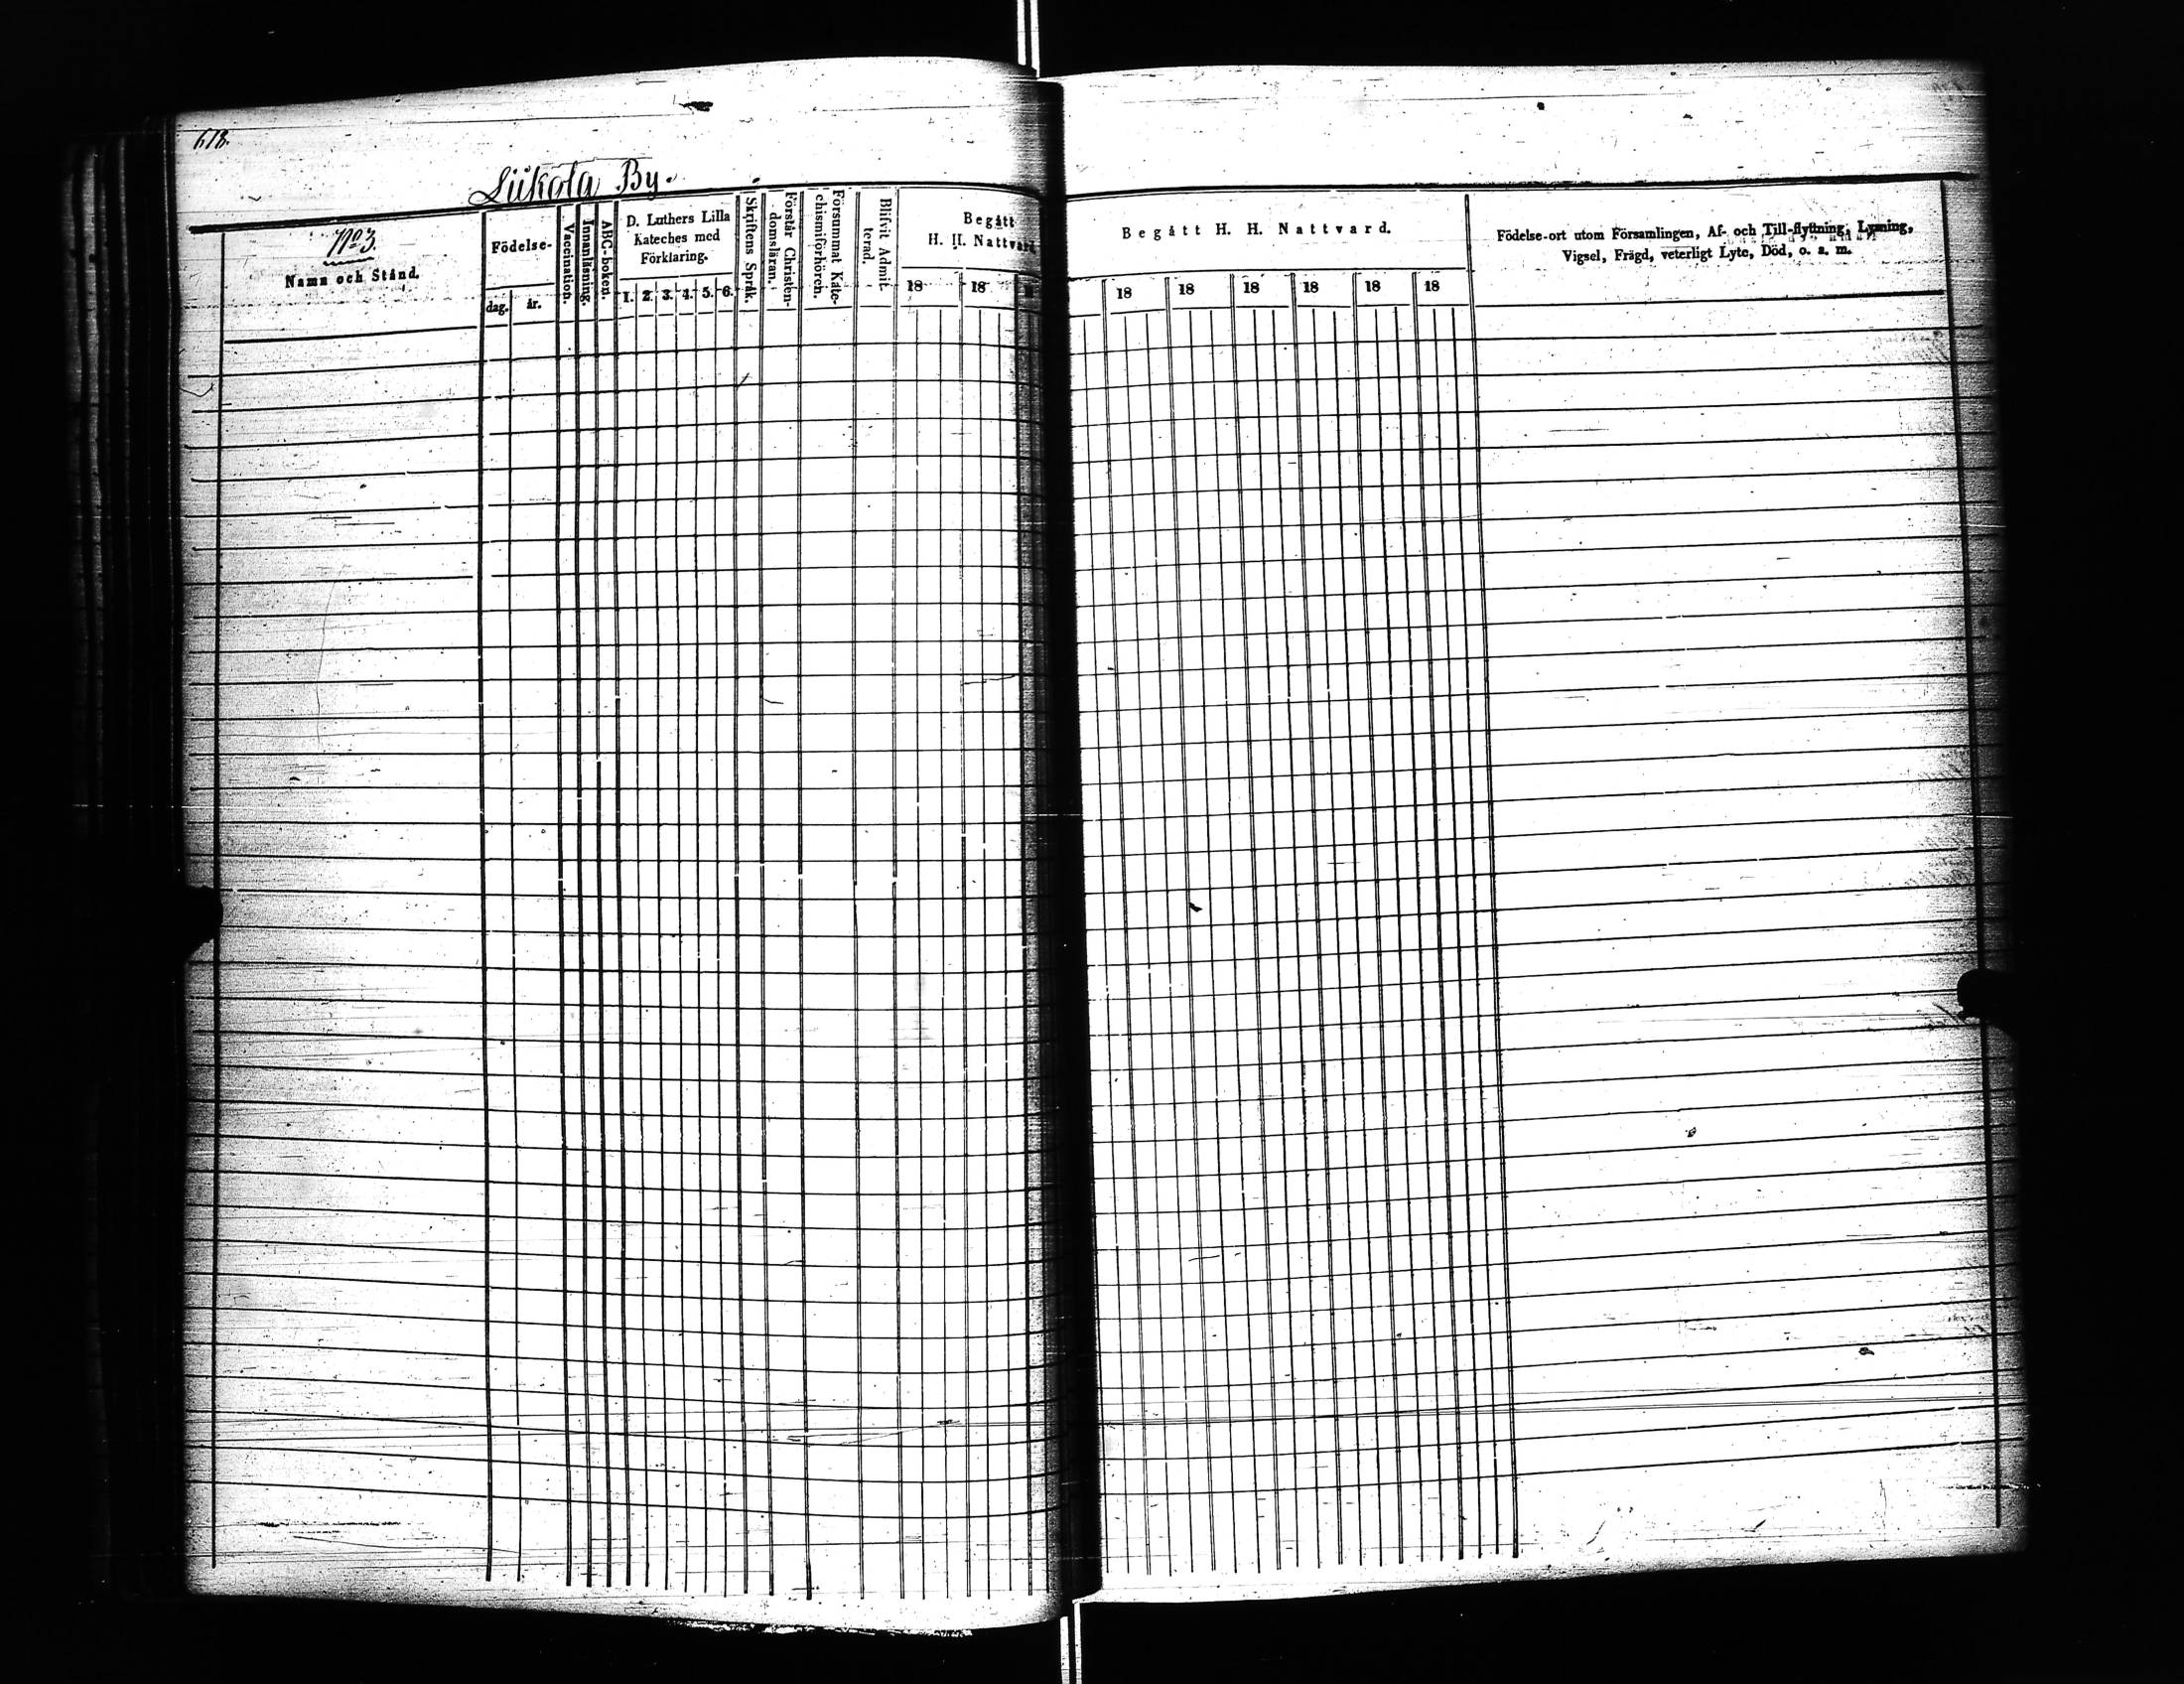 618.
Liikola By.
No 3.
Namn och Stånd.
Födelse-
dag.
år.
Vaccination.
Innanläsning.
ABC-boken.
D. Luthers Lilla
Kateches med
Förklaring.
1. 2. 3. 4. 5. 6.
Skriftens Språk.
Förstår Christen-
domsläran.
Försummat Kate-
chismiförhören.
Blifvit Admit-
terad.
Begått
H. H. Nattvard
18 18
Begått H. H. Nattvard.
18 18 18 18 18 18
Födelse-ort utom Församlingen, Af- och Till-flyttning, Lysning,
Vigsel, Frägd, veterligt Lyte, Död, o. a. m.